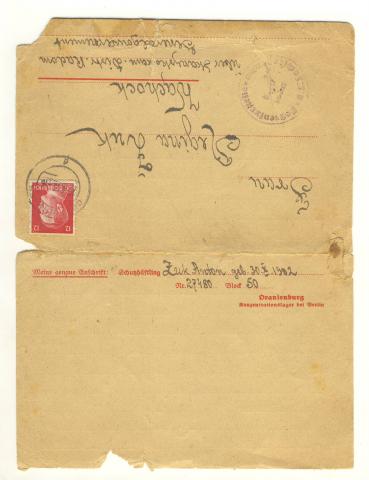 Frau
Regina Żuk
Wąchock
über Skarżysko Kam. Distr. Radom
Generalgouvernement
12
Meine genaue Anschrift: Schutzhäftling Żuk Anton geb. 30 X 1902
Nr. 27480 Block 50
Oranienburg
Konzentrationslager bei Berlin